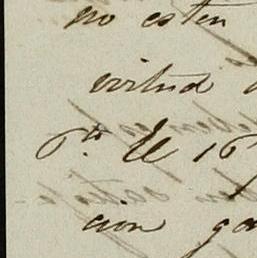 no esten
virtud
6ª El 16
cion ga